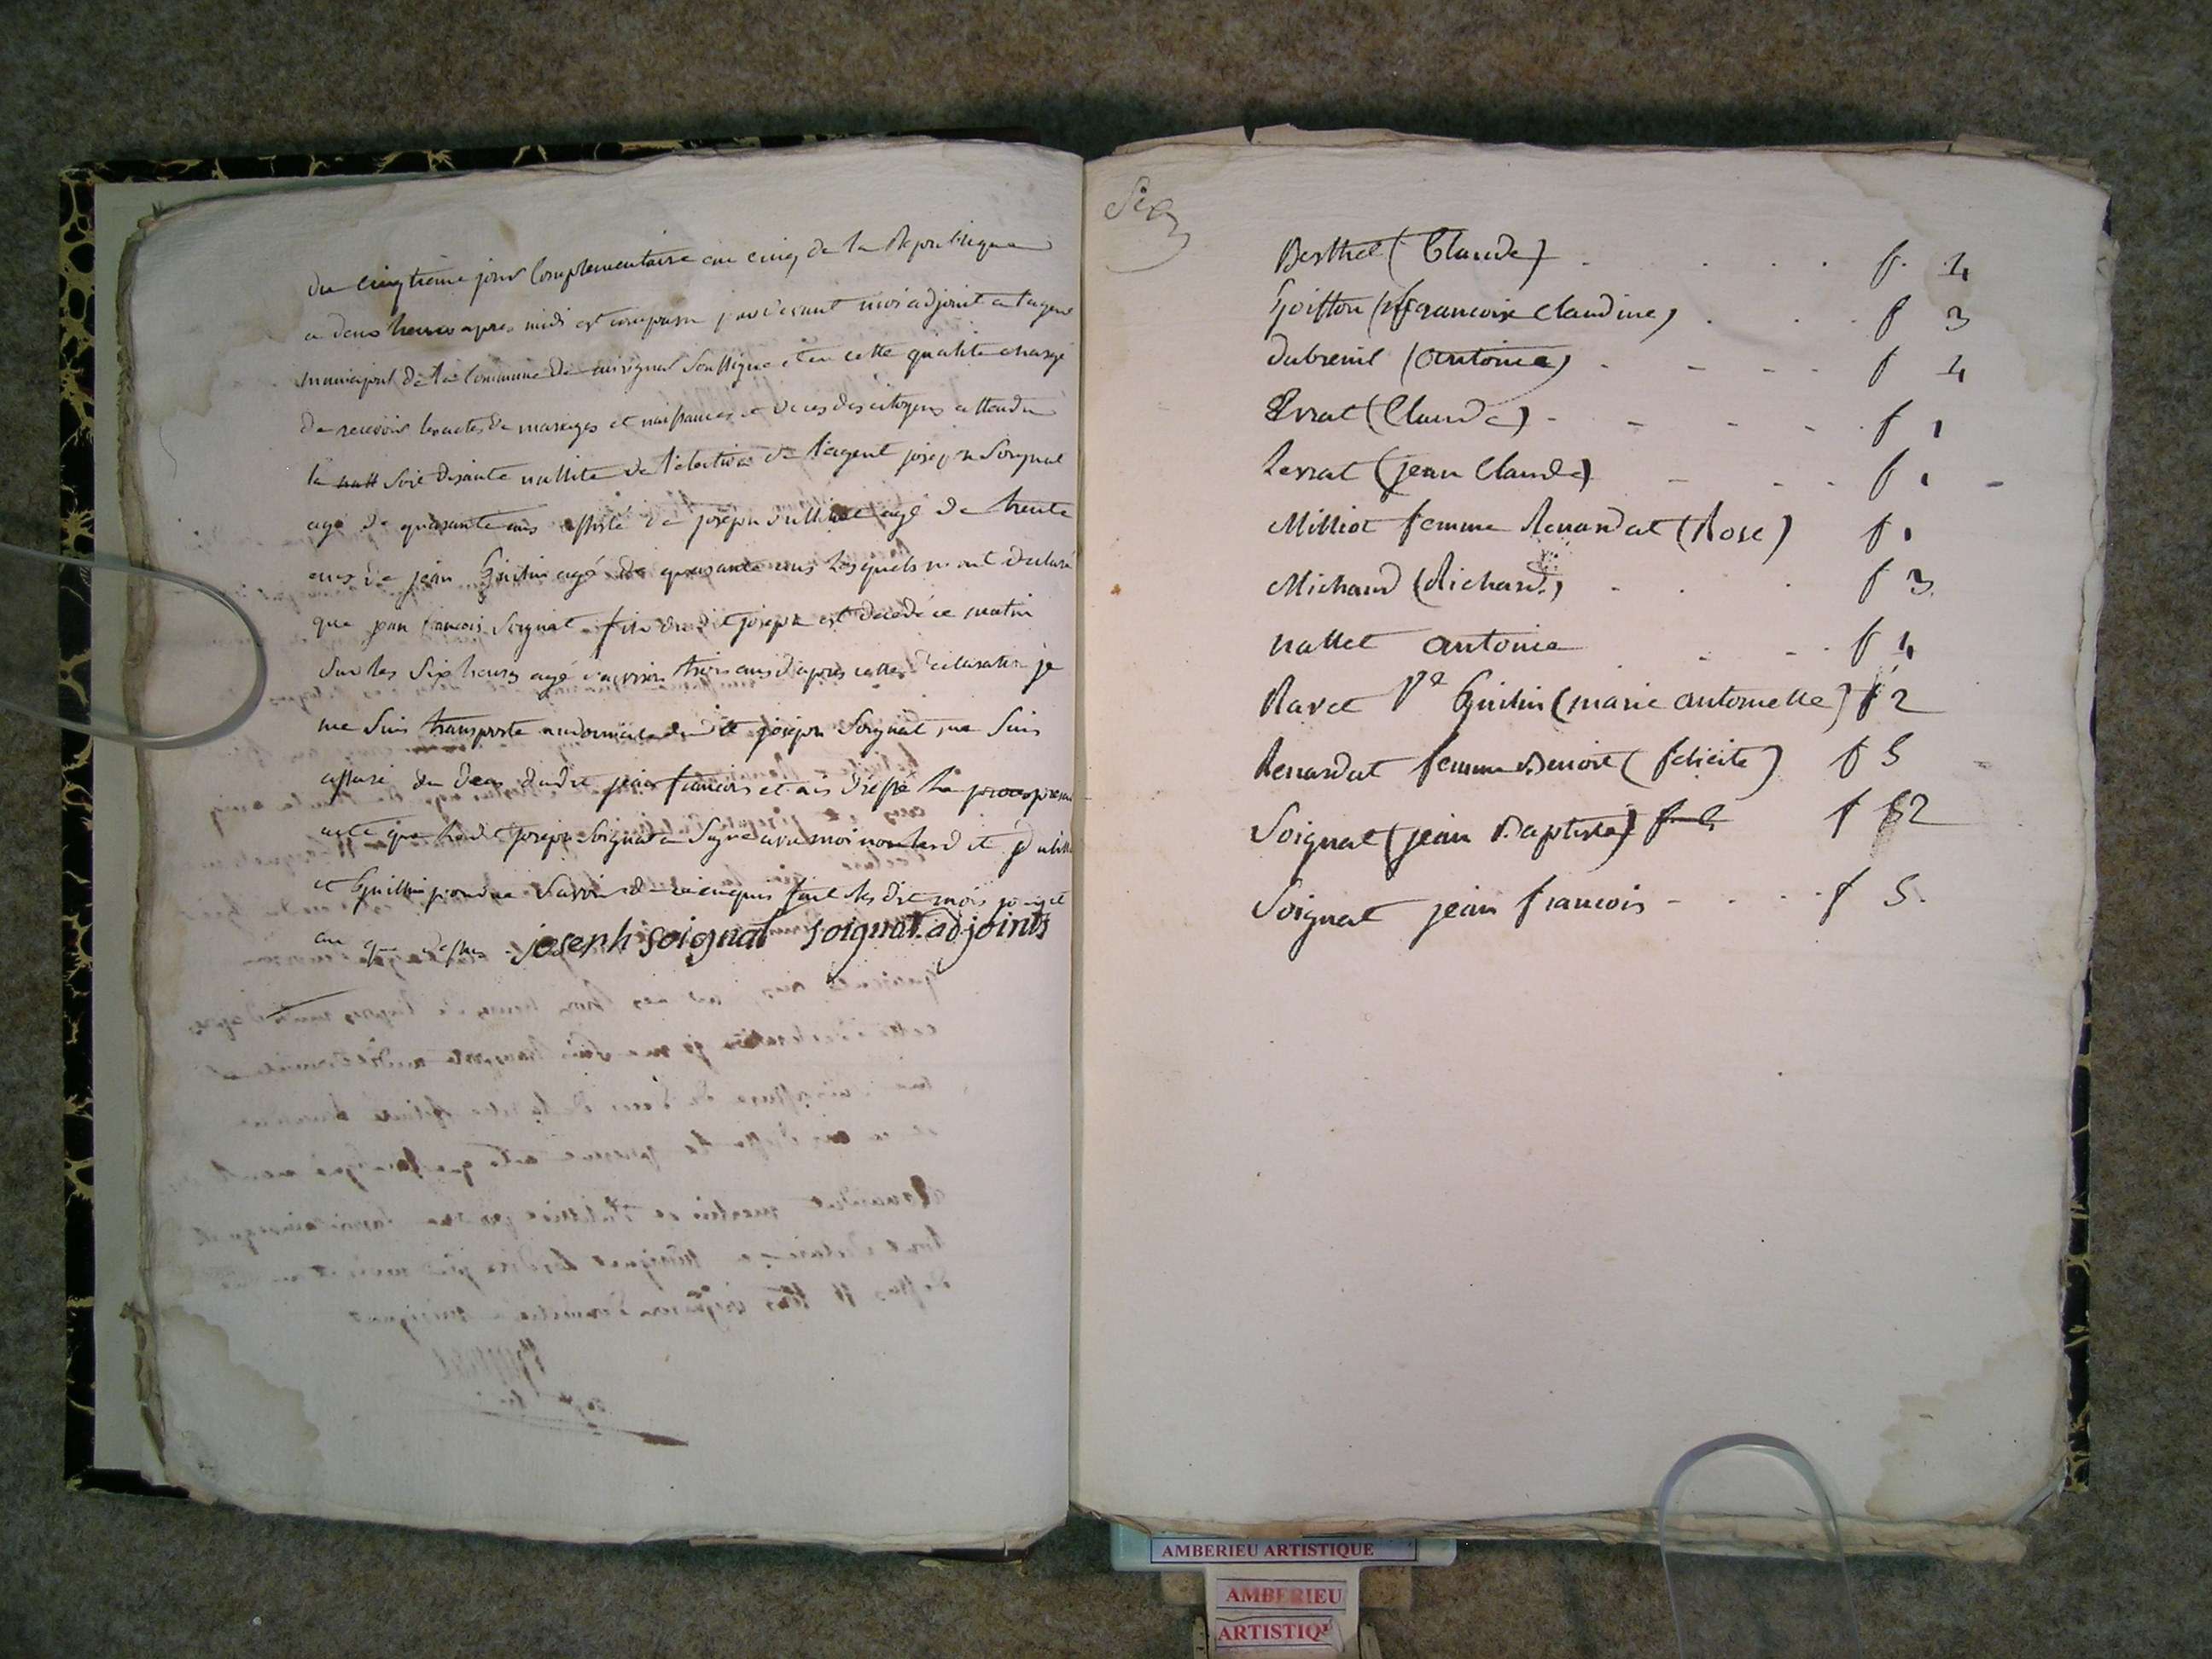 du cinqtieme jour Complementaire an cinq de la Republique
a deux heures apres midi est comparu par devant moi adjoint a l'agent
municipal de la Commune de mirignat Soussigne et en cette qualite chargé
de recevoir les actes de mariages et naissances et deces des citoyens attendu
la Soit disante nullite de l'election de l'agent joseph Soignat
agé de quarante ans assisté de joseph agé de trente
ans de jean Guillin agé de quarante ans Lesquels m'ont declaré
que jean francois Soignat fils du dit joseph est decedé ce matin
Sur les Six heures agé d'environ trois ans d'apres cette declaration je
me Suis transporté au domicile du dit joseph Soignat, me Suis
assuré du deces dudit jean francois et ai dréssé Le present
acte que le dit joseph Soignat a Signé avec moi non led it
et Guillin pour ne Savoir de ce enquis fait les dit mois jour et
an que dessus joseph soignat soignat adjoints
Six
Berthet (Claude) . . . . . f. 4
Goiffon (francoise Claudine) . . . f 3
dubreuil (Antoine) . - - - f 4
Evrat (Claude) - - - - . f 1
Levrat (jean Claude) - - - . f 1 -
Milliot femme Renardat (Rose) f 1
Michaud (Richard) . . . f 3.
nallet antoine . - - . f 4
Ravet Ve Guillin (marie antoinette) f 2
Renardat femme Benoit (felicite) f 5
Soignat (jean Baptiste) f 2
Soignat jean francois - . . . f 5.
AMBERIEU ARTISTIQUE
AMBERIEU
ARTISTIQ